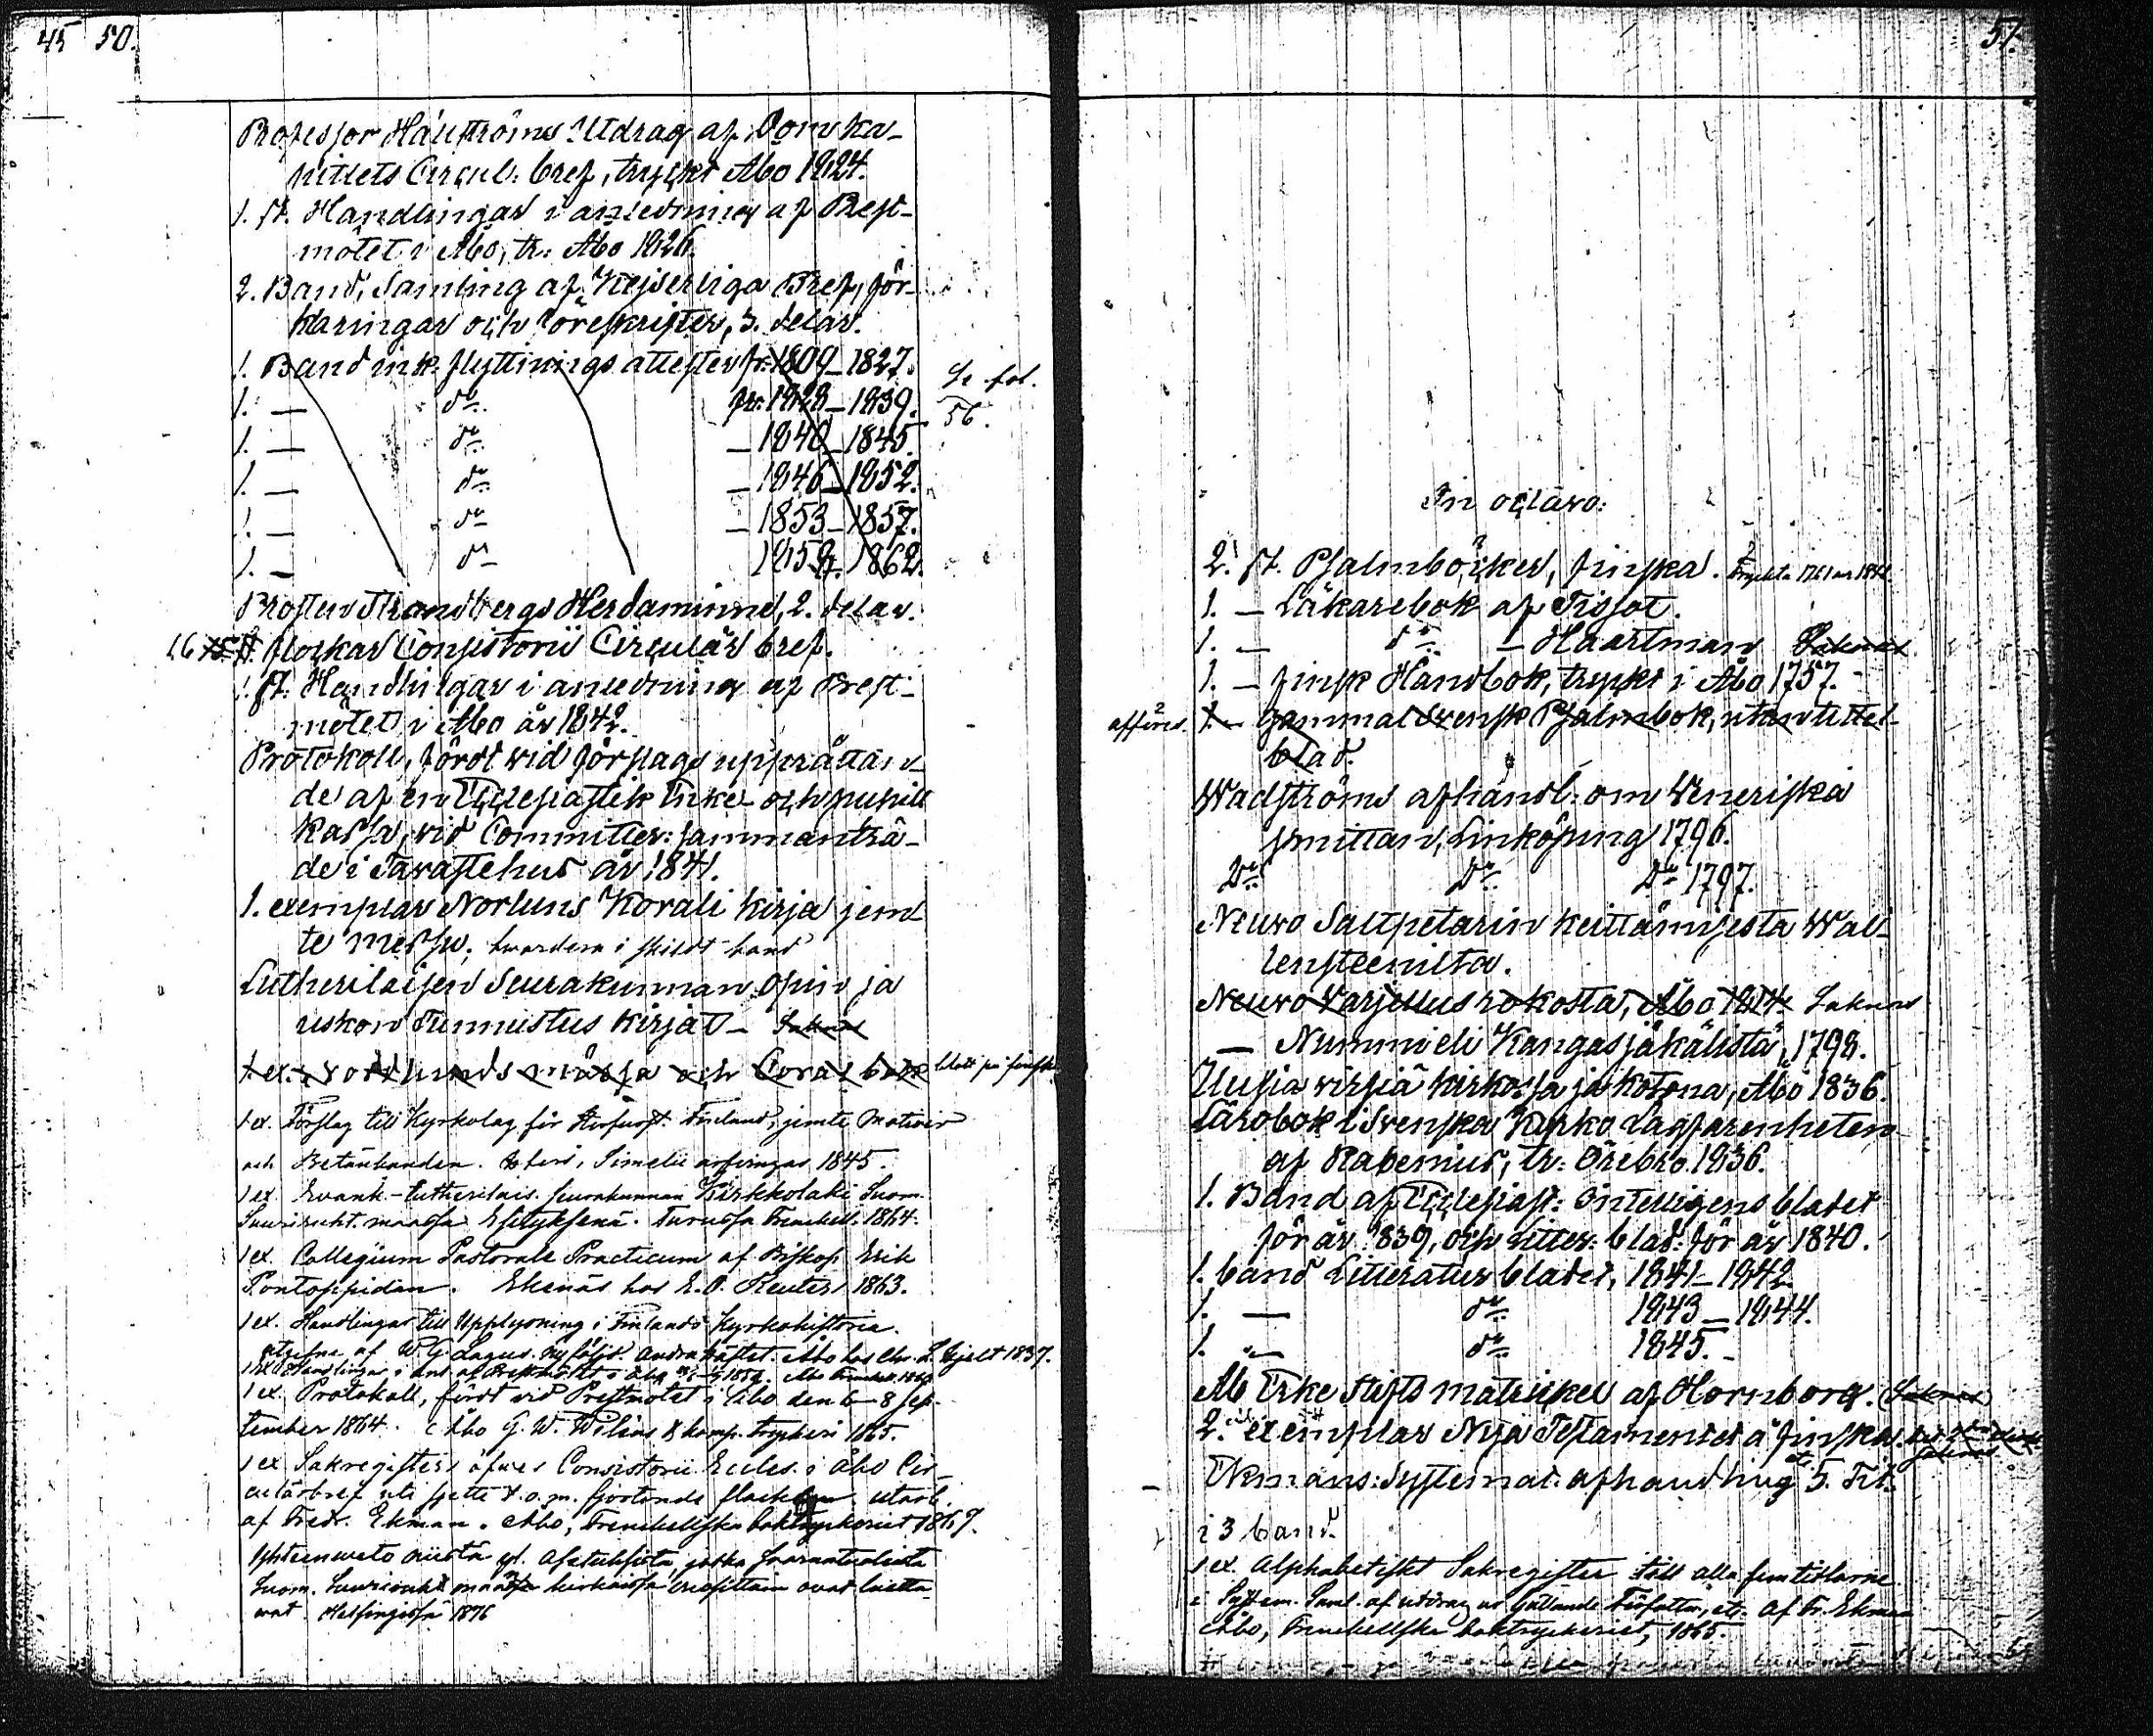 45 50.
Professor Hällströms Utdrag af Domka-
pitlets Circul: bref, tryckt Åbo 1824.
1. st. Handlingar i anledning af Prest-
mötet i Åbo, tr. Åbo 1826.
2. Band, Samling af Kejserliga Bref, för-
klaringar och föreskrifter, 3. delar.
1. Band ink. flyttnings attester fr: 1809-1827.
Se fol.
56.
1. — do fr: 1828-1839.
1. — do — 1840-1845.
1. — do — 1846-1852.
1. — do — 1853-1857.
1. — do 1858-1862.
Prosten Strandbergs Herdaminne, 2. delar.
16 15 st. flockar Consistorii Circulär bref.
1. st. Handlingar i anledning af Prest-
mötet i Åbo år 1842.
Protokoll, fördt vid förslags upprättan-
de af en Ecclesiastik Enke- och pupill
kassa, vid Committer: sammanträ-
de i Tavastehus år 1841.
1. exemplar Norluns Korali kirja jem-
te messu, hvardera i skildt band
Lutherilaisen Seurakunnan opin ja
uskon Tunnustus kirjat – Saknas
1. ex. Nordlunds mässa och Coral bok blott på finska
1 ex. Förslag till Kyrkolag för Storfurst. Finland, jemte Motiver
och Betänkanden. Åbo, Simelii arfvingar 1845.
1 ex. Evank.-lutherilais. seurakunnan Kirkkolaki Suom.
Suuriruht. maassa Esityksenä. Turussa Frenckell. 1864.
1 ex. Collegium Pastorale Practicum af Biskop Erik
Pontoppidan. Ekenäs hos E. O. Reuter 1863.
1 ex. Handlingar till Upplysning i Finlands Kyrkohistoria.
utgifne af W G Lagus. Ny följd. Andra häftet. Åbo hos Chr. L. Hjelt 1837.
1 ex. Handlingar i anl. af Prestmötet i Åbo 1859. Åbo Frenckell 1860
1 ex. Protokoll, fördt vid Prestmötet i Åbo den 6-8 Sep-
tember 1864. Åbo G. W. Wilén & komp. tryckeri 1865.
1 ex Sakregister öfver Consistorii Eccles. i Åbo Cir-
culärbref uti sjette t.o.m. fjortonde flocken utarb.
af Fredr. Ekman. Åbo, Frenckellska boktryckeriet 1867.
Yhteenveto niistä yl. Asetuksista, jotka Saarnatuolista
Suom. Suuriruht. maassa kirkoissa vuosittain ovat luetta
wat. Helsingissä 1876
51.
In octavo:
2. st. Psalmböcker, finska. tryckta 1761 o 1842
1. — Läkarebok af Tissot.
1. — do — Haartman Saknas
1. — finsk Handbok, tryckt i Åbo 1757.
afförd. 1. — gammal Svensk Psalmbok, utan tittel-
blad.
Wadströms afhandl: om Veneriska
smittan, Linköping 1796.
Do Do Do 1797.
Neuvo Saltpetarin keittämisestä Wal-
lensteenilta.
Neuvo Varjellus rokosta, Åbo 1814. Saknas
— Nummi eli Kangasjäkälistä, 1798.
Uusia virsiä kirkossa ja kotona, Åbo 1836.
Lärobok i Svenska Kyrko Lagfarenheten
af Rabenius, tr: Örebro 1836.
1. Band af Ecclesiast: Intelligens bladet
för år 1839, och Litter: blad: för år 1840.
1. band Litteratur bladet, 1841-1842
1. — do 1843-1844.
1. — do 1845.
Åb Erke Stifts matrickel af Hornborg. (Saknas)
2. exemplar Nya Testamentet å finska.
Ekmans: Systemat. afhandling 5. Tit.
i 3 band.
1 ex. Alphabetiskt Sakregister till alla fem titlarne
i System. Saml. af utdrag ur Gällande Författn, etc. Af Fr. Ekman
Åbo, Frenckellska boktryckeriet, 1865.